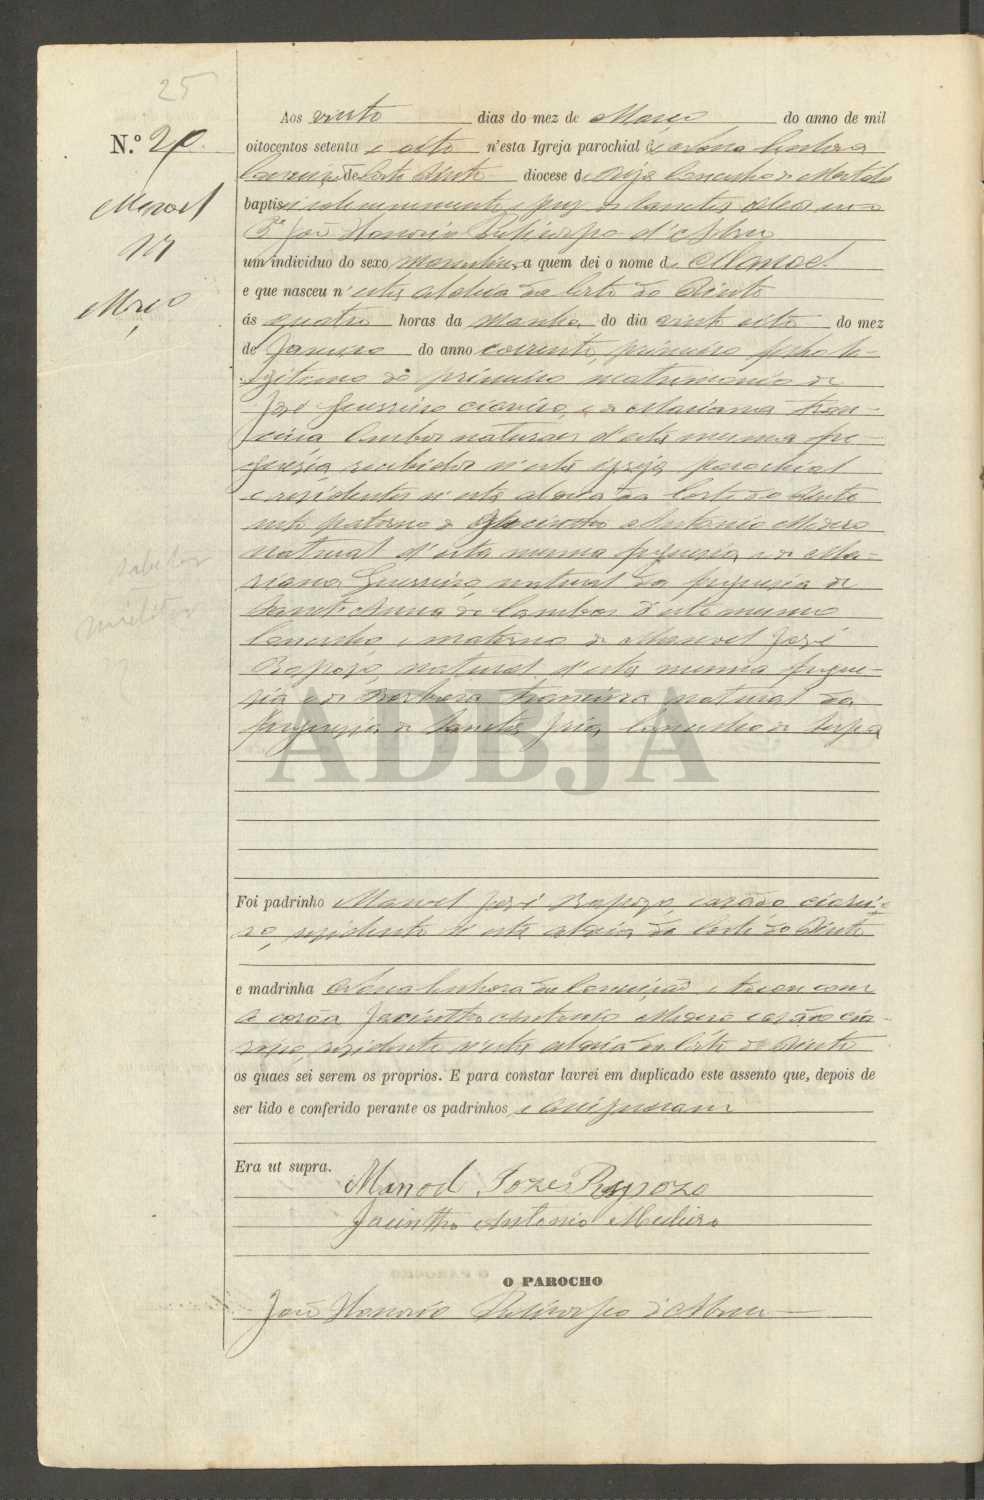 25
N.º 20
Manoel
Março
Aos vinte dias do mez de Março do anno de mil
oitocentos setenta e oito n'esta Igreja parochial de Nossa Senhora
Conceição de Corte Pinto diocese de Beja Concelho de Mertola
baptisei solemnemente e puz os Sanctos oleos eu o
P.e João Honorio Policarpo d'Abreu
um individuo do sexo masculino a quem dei o nome de Manoel
e que nasceu n'esta aldeia da Corte do Pinto
ás quatro horas da manhã do dia vinte oito do mez
de Janeiro do anno corrente, primeiro filho le-
gitimo do primeiro matrimonio de
José Guerreiro, e de Marianna Fran-
cisca ambos naturaes d'esta mesma fre-
guesia, recebidos n'esta igreja parochial
e residentes n'esta aldeia da Corte do Pinto
neto paterno de Jacintho Antonio
natural d'esta mesma freguesia e de Ma-
rianna Guerreiro, natural da freguesia de
Sanct'Anna de Cambas d'este mesmo
Concelho, e materno de Manoel José
Rapozo, natural d'esta mesma fregue-
sia e de Barbara Francisca natural da
freguesia de Sancta Iria, Concelho de Serpa
ADBJA
Foi padrinho Manoel José Rapozo, casado
residente n'esta aldeia da Corte do Pinto
e madrinha Nossa Senhora da Conceição, e tocou com
a corôa Jacintho Antonio casado
residente n'esta aldeia da Corte do Pinto
os quaes sei serem os proprios. E para constar lavrei em duplicado este assento que, depois de
ser lido e conferido perante os padrinhos, e assignaram
Era ut supra.
Manoel Joze Rapozo
Jacintho Antonio
O PAROCHO
João Honorio Policarpo d'Abreu